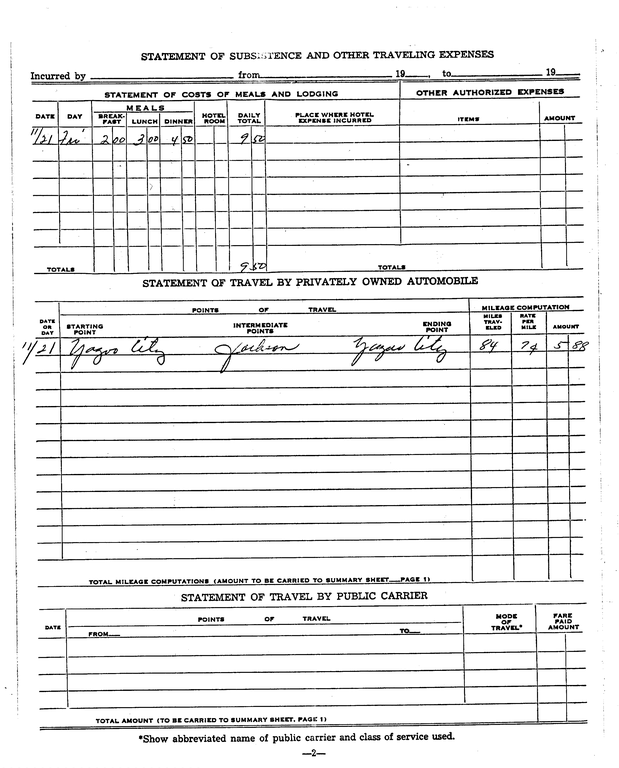 STATEMENT OF SUBSISTENCE AND OTHER TRAVELING EXPENSES
Incurred by from 19 , to 19
STATEMENT OF COSTS OF MEALS AND LODGING OTHER AUTHORIZED EXPENSES
MEALS
DATE DAY BREAK-FAST LUNCH DINNER HOTEL ROOM DAILY TOTAL PLACE WHERE HOTEL EXPENSE INCURRED ITEMS AMOUNT
11/21 Fri 2 00 3 00 4 50 9 50
TOTALS 9 50 TOTALS
STATEMENT OF TRAVEL BY PRIVATELY OWNED AUTOMOBILE
POINTS OF TRAVEL MILEAGE COMPUTATION
DATE OR DAY STARTING POINT INTERMEDIATE POINTS ENDING POINT MILES TRAV-ELED RATE PER MILE AMOUNT
11/21 Yazoo City Jackson Yazoo City 84 7¢ 5 88
TOTAL MILEAGE COMPUTATIONS (AMOUNT TO BE CARRIED TO SUMMARY SHEET—PAGE 1)
STATEMENT OF TRAVEL BY PUBLIC CARRIER
DATE POINTS OF TRAVEL MODE OF TRAVEL* FARE PAID AMOUNT
FROM— TO—
TOTAL AMOUNT (TO BE CARRIED TO SUMMARY SHEET, PAGE 1)
*Show abbreviated name of public carrier and class of service used.
—2—